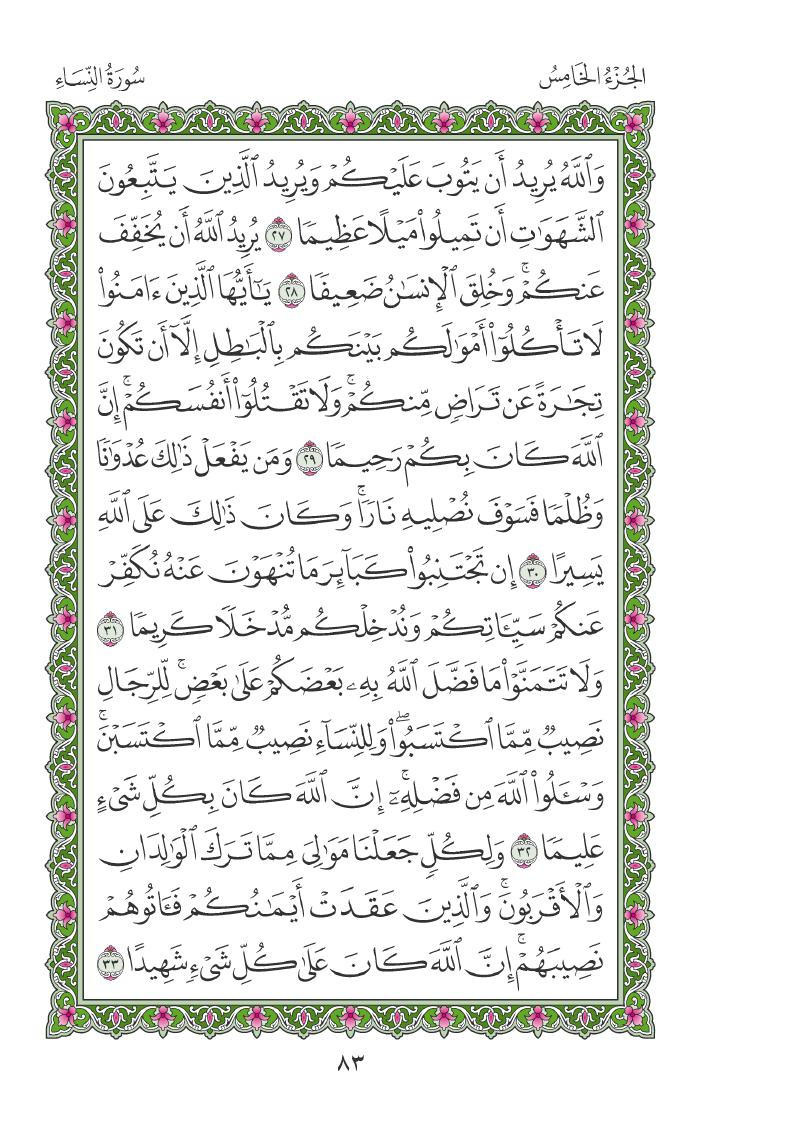 الجُزْءُ الخَامِسُ
سُورَةُ النِّسَاءِ
وَٱللَّهُ يُرِيدُ أَن يَتُوبَ عَلَيْكُمْ وَيُرِيدُ ٱلَّذِينَ يَتَّبِعُونَ
ٱلشَّهَوَٰتِ أَن تَمِيلُوا۟ مَيْلًا عَظِيمًا ٢٧ يُرِيدُ ٱللَّهُ أَن يُخَفِّفَ
عَنكُمْ ۚ وَخُلِقَ ٱلْإِنسَٰنُ ضَعِيفًا ٢٨ يَٰٓأَيُّهَا ٱلَّذِينَ ءَامَنُوا۟
لَا تَأْكُلُوٓا۟ أَمْوَٰلَكُم بَيْنَكُم بِٱلْبَٰطِلِ إِلَّآ أَن تَكُونَ
تِجَٰرَةً عَن تَرَاضٍ مِّنكُمْ ۚ وَلَا تَقْتُلُوٓا۟ أَنفُسَكُمْ ۚ إِنَّ
ٱللَّهَ كَانَ بِكُمْ رَحِيمًا ٢٩ وَمَن يَفْعَلْ ذَٰلِكَ عُدْوَٰنًا
وَظُلْمًا فَسَوْفَ نُصْلِيهِ نَارًا ۚ وَكَانَ ذَٰلِكَ عَلَى ٱللَّهِ
يَسِيرًا ٣٠ إِن تَجْتَنِبُوا۟ كَبَآئِرَ مَا تُنْهَوْنَ عَنْهُ نُكَفِّرْ
عَنكُمْ سَيِّـَٔاتِكُمْ وَنُدْخِلْكُم مُّدْخَلًا كَرِيمًا ٣١
وَلَا تَتَمَنَّوْا۟ مَا فَضَّلَ ٱللَّهُ بِهِۦ بَعْضَكُمْ عَلَىٰ بَعْضٍ ۚ لِّلرِّجَالِ
نَصِيبٌ مِّمَّا ٱكْتَسَبُوا۟ ۖ وَلِلنِّسَآءِ نَصِيبٌ مِّمَّا ٱكْتَسَبْنَ ۚ
وَسْـَٔلُوا۟ ٱللَّهَ مِن فَضْلِهِۦٓ ۗ إِنَّ ٱللَّهَ كَانَ بِكُلِّ شَىْءٍ
عَلِيمًا ٣٢ وَلِكُلٍّ جَعَلْنَا مَوَٰلِىَ مِمَّا تَرَكَ ٱلْوَٰلِدَانِ
وَٱلْأَقْرَبُونَ ۚ وَٱلَّذِينَ عَقَدَتْ أَيْمَٰنُكُمْ فَـَٔاتُوهُمْ
نَصِيبَهُمْ ۚ إِنَّ ٱللَّهَ كَانَ عَلَىٰ كُلِّ شَىْءٍ شَهِيدًا ٣٣
٨٣